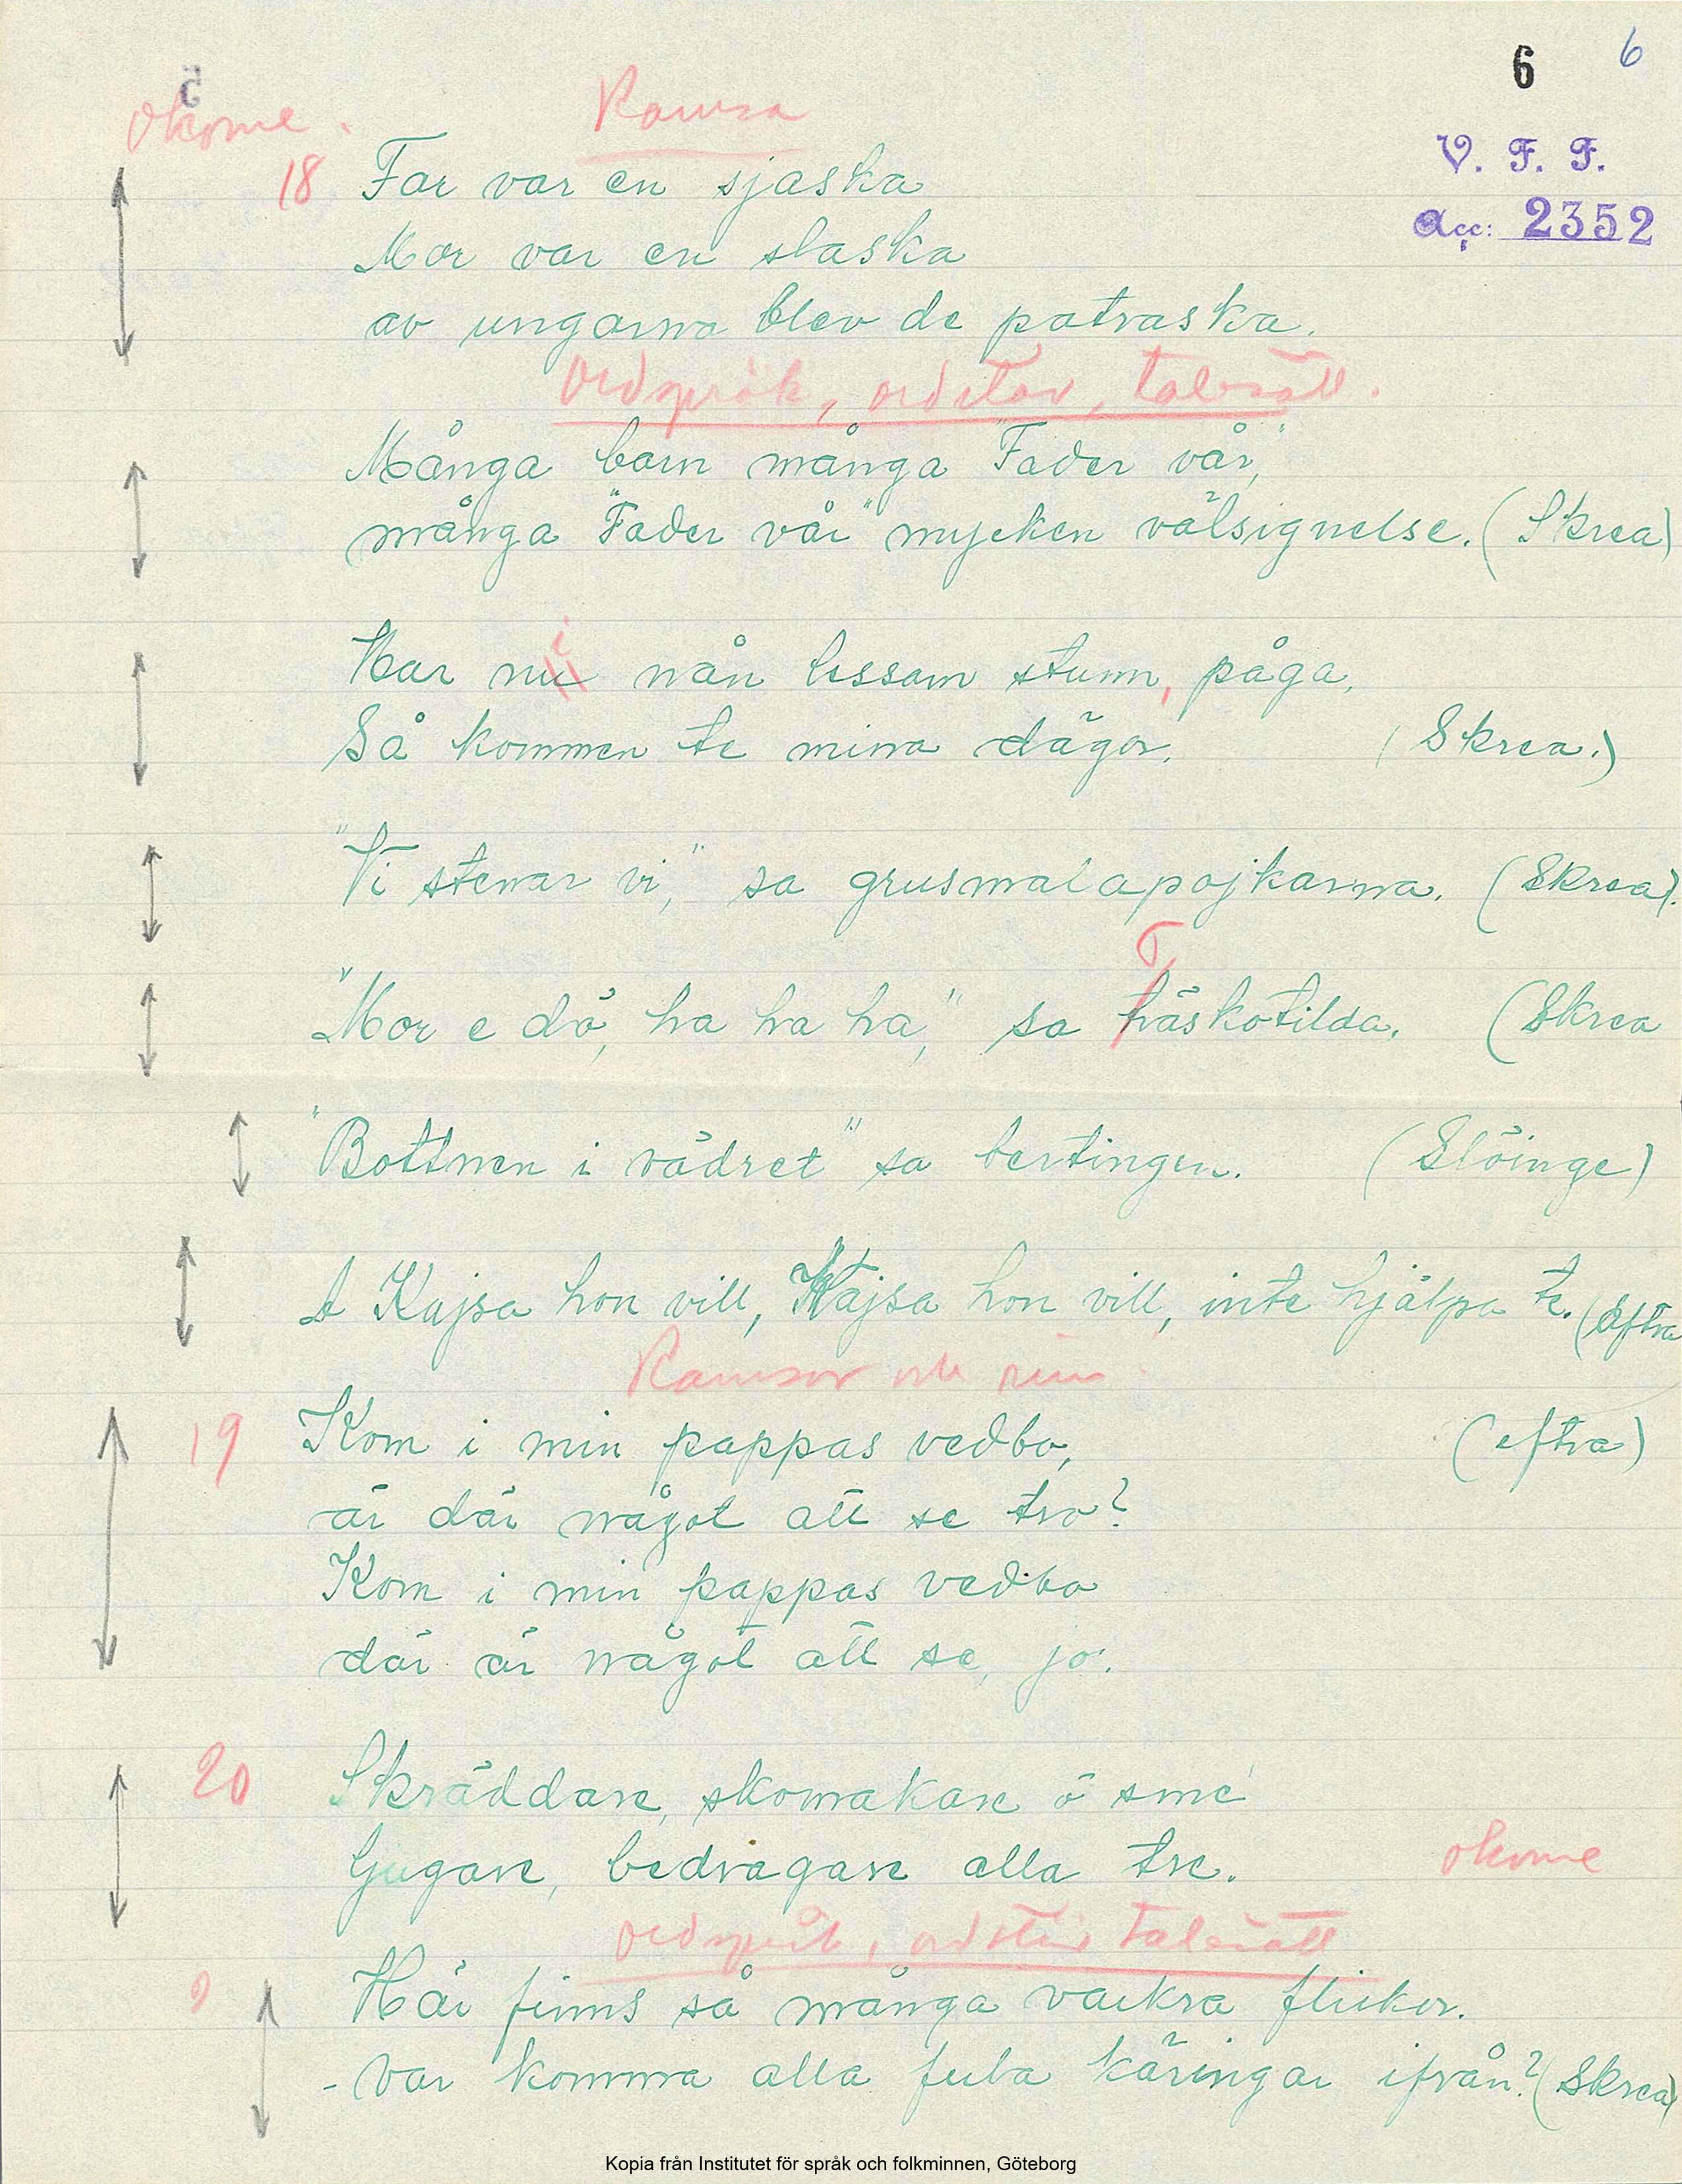 6 6
5
Okome. Ramsa
V. F. F.
18 Far var en sjaska
Acc: 2352
Mor var en slaska
av ungarna blev de patraska.
Ordspråk, ordstäv, talesätt.
Många barn många "Fader vår",
många "Fader vår" mycken välsignelse. (Skrea)
Har ni nån lessam stunn, påga,
Så kommen te minna dägor. (Skrea.)
"Vi stenar vi," sa grusmalapojkarna. (Skrea).
"Mor e dö, ha ha ha," sa Träskotilda. (Skrea
"Bottnen i vädret" sa bertingen. (Slöinge)
A Kajsa hon vill, Kajsa hon vill, inte hjälpa te. (Eftra
Ramsor och rim
19 Kom i min pappas vedbo, (eftra)
är där något att se tro?
Kom i min pappas vedbo
där är något att se, jo.
20 Skräddare, skomakare ö sme
ljugare, bedragare alla tre. Okome
Ordspråk, ordstäv talesätt
Här finns så många vackra flickor.
- Var komma alla fula käringar ifrån? (Skrea)
Kopia från Institutet för språk och folkminnen, Göteborg